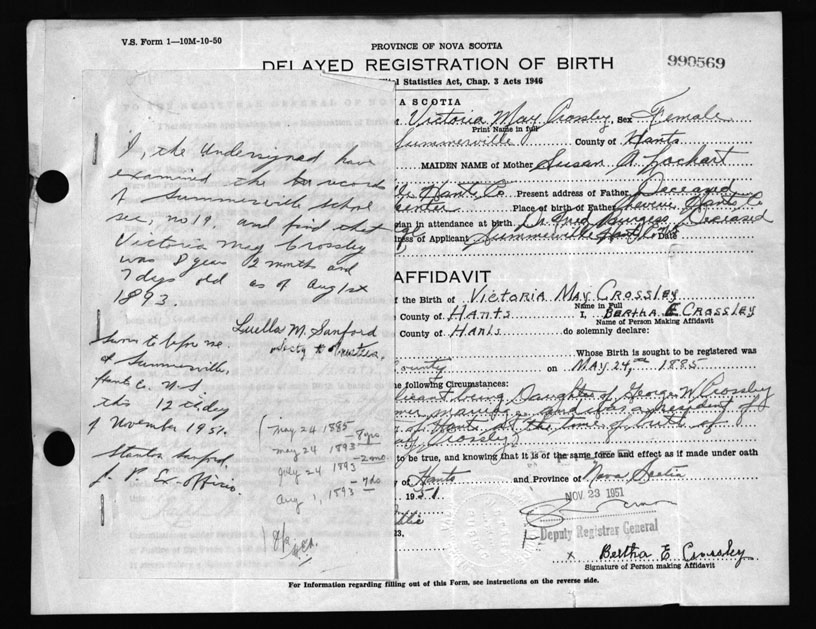 V.S. Form 1—10M-10-50
PROVINCE OF NOVA SCOTIA
DELAYED REGISTRATION OF BIRTH
990569
Statistics Act, Chap. 3 Acts 1946
A SCOTIA
Victoria May Crossley, Sex Female
Print Name in full
Summerville County of Hants
MAIDEN NAME of Mother Susan A. Lockart
Hants Co Present address of Father Deceased
Place of birth of Father Cheverie, Hants Co
ian in attendance at birth Dr. Fred Burgess, Deceased
ress of Applicant Summerville Hants Co Date
I, the undersigned, have
examined the records
of Summerville School
sec, no 19, and find that
Victoria May Crossley
was 8 years 2 months and
7 days old as of Aug 1st
1893.
Luella M. Sanford
Secty to Trustees.
Sworn to before me
at Summerville,
Hants Co. N.S
this 12th day
of November 1951.
Stanton Sanford,
J. P. Ex-officio.
may 24 1885 — 8 yrs
may 24 1893 — 2 mo.
July 24 1893 — 7 ds
Aug 1, 1893
AFFIDAVIT
f the Birth of VICTORIA MAY CROSSLEY
Name in Full
County of HANTS I, BERTHA E CROSSLEY
Name of Person Making Affidavit
County of HANTS do solemnly declare:
Whose Birth is sought to be registered was
County on MAY 24, 1885
he following Circumstances:
being Daughter of George W Crossley
resident of
of Hants at the time of birth of
Crossley
to be true, and knowing that it is of the same force and effect as if made under oath
of Hants and Province of Nova Scotia
1951
NOV 23 1951
Deputy Registrar General
x Bertha E Crossley
Signature of Person making Affidavit
For Information regarding filling out of this Form, see instructions on the reverse side.